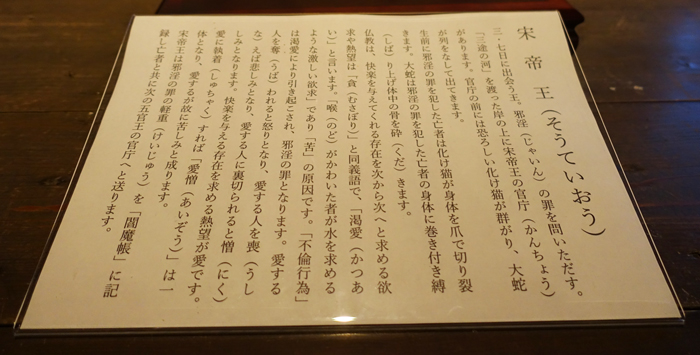 宋帝王（そうていおう）
三・七日に出会う王。邪淫（じゃいん）の罪を問いただす。
「三途の河」を渡った岸の上に宋帝王の官庁（かんちょう）
があります。官庁の前には恐ろしい化け猫が群がり、大蛇
が列をなして出てきます。
生前に邪淫の罪を犯した亡者は化け猫が身体を爪で切り裂
きます。大蛇は邪淫の罪を犯した亡者の身体に巻き付き縛
（しば）り上げ体中の骨を砕（くだ）きます。
仏教は、快楽を与えてくれる存在を次から次へと求める欲
求や熱望は「貪（むさぼり）」と同義語で、「渇愛（かつあ
い）」と言います。「喉（のど）がかわいた者が水を求める
ような激しい欲求」であり「苦」の原因です。「不倫行為」
は渇愛により引き起こされ、邪淫の罪となります。愛する
人を奪（うば）われると怒りとなり、愛する人を喪（うし
な）えば悲しみとなり、愛する人に裏切られると憎（にく）
しみとなります。快楽を与える存在を求める熱望が愛です。
愛に執着（しゅちゃく）すれば「愛憎（あいぞう）」は一
体となり、愛するが故に苦しみと成ります。
宋帝王は邪淫の罪の軽重（けいじゅう）を「閻魔帳」に記
録し亡者と共に次の五官王の官庁へと送ります。